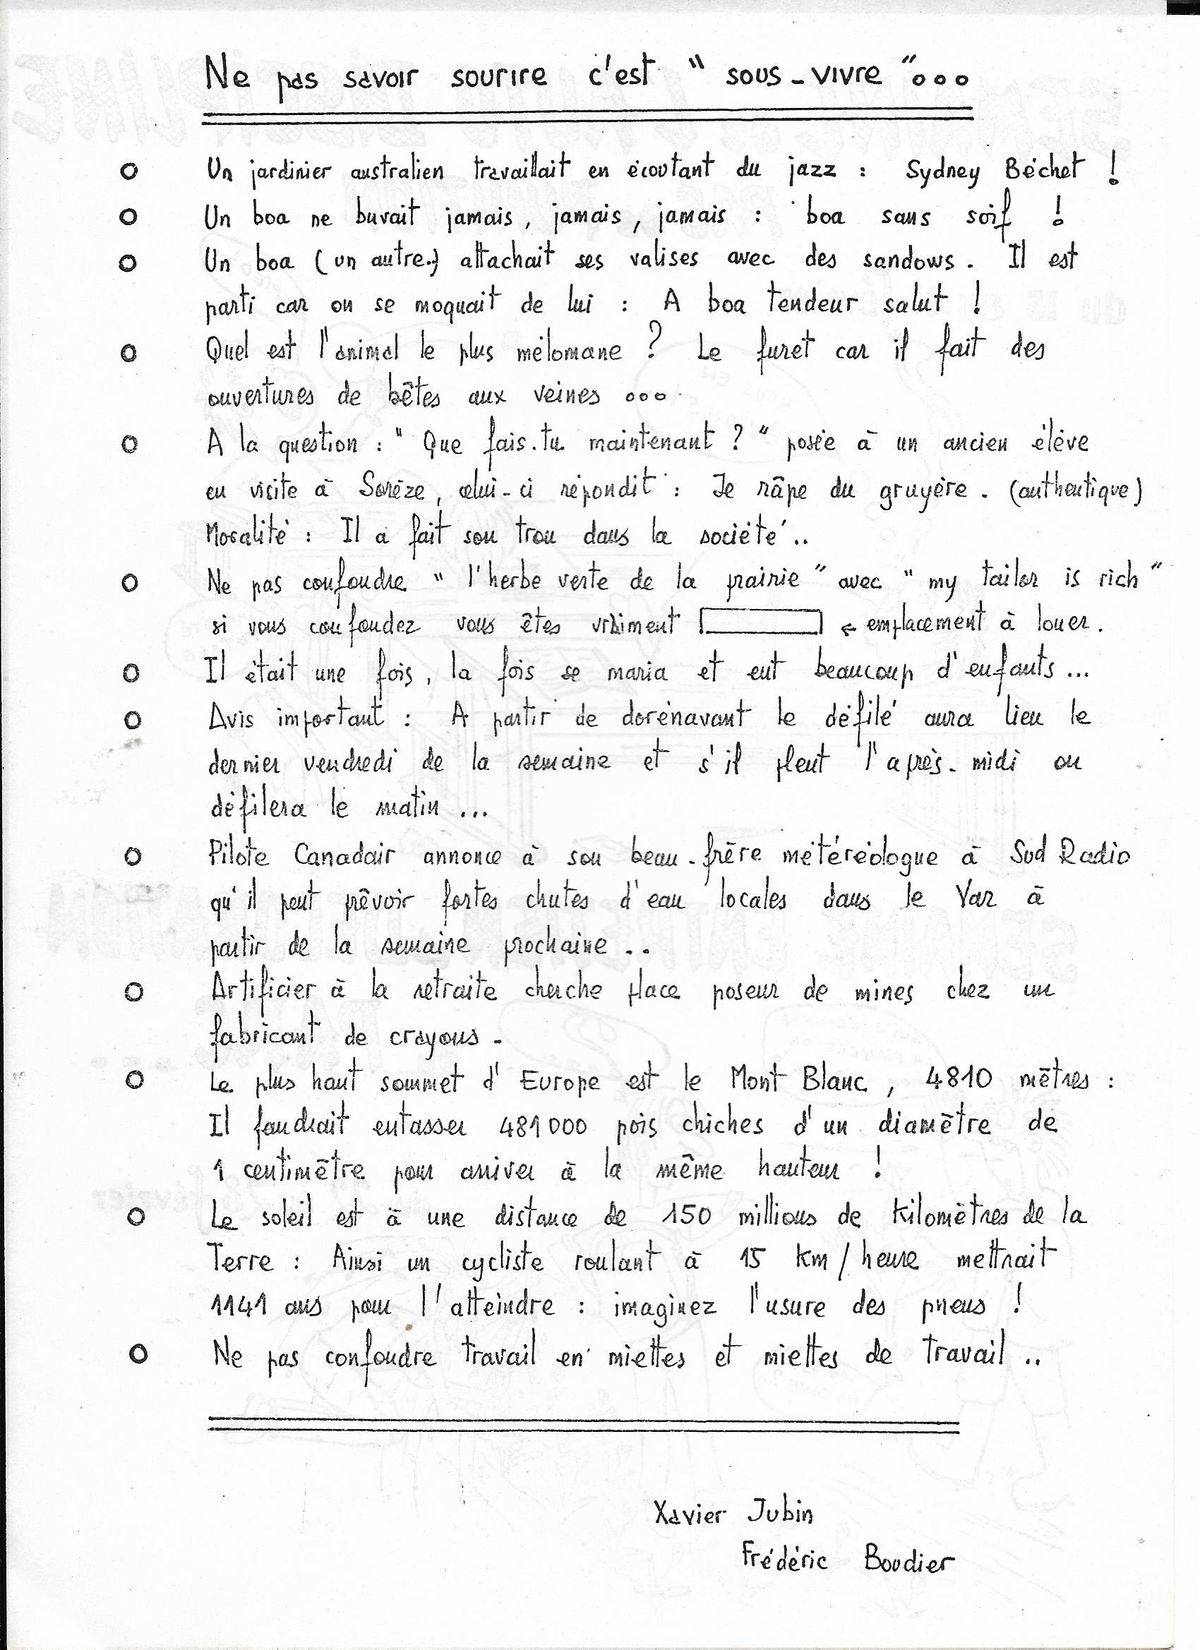 Ne pas savoir sourire c'est " sous-vivre "ooo
o Un jardinier australien travaillait en écoutant du jazz : Sydney Béchet !
o Un boa ne buvait jamais, jamais, jamais : boa sans soif !
o Un boa (un autre.) attachait ses valises avec des sandows. Il est
parti car on se moquait de lui : A boa tendeur salut !
o Quel est l'animal le plus mélomane ? Le furet car il fait des
ouvertures de bêtes aux veines ooo
o A la question : " Que fais-tu maintenant ? " posée à un ancien élève
en visite à Sorèze, celui-ci répondit : Je râpe du gruyère. (authentique)
Moralité : Il a fait son trou dans la société..
o Ne pas confondre " l'herbe verte de la prairie " avec " my tailor is rich "
si vous confondez vous êtes vraiment ← emplacement à louer.
o Il était une fois, la fois se maria et eut beaucoup d'enfants...
o Avis important : A partir de dorénavant le défilé aura lieu le
dernier vendredi de la semaine et s'il pleut l'après-midi on
défilera le matin ...
o Pilote Canadair annonce à son beau-frère météréologue à Sud Radio
qu'il peut prêvoir fortes chutes d'eau locales dans le Var à
partir de la semaine prochaine ..
o Artificier à la retraite cherche place poseur de mines chez un
fabricant de crayons.
o Le plus haut sommet d'Europe est le Mont Blanc, 4810 mètres :
Il faudrait entasser 481000 pois chiches d'un diamètre de
1 centimètre pour arriver à la même hauteur !
o Le soleil est à une distance de 150 millions de Kilomètres de la
Terre : Ainsi un cycliste roulant à 15 Km/heure mettrait
1141 ans pour l'atteindre : imaginez l'usure des pneus !
o Ne pas confondre travail en miettes et miettes de travail ..
Xavier Jubin
Frédéric Boudier